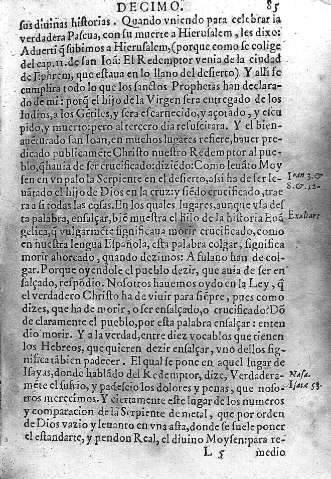 DECIMO. 85
sus diuinas historias. Quando vniendo para celebrar la
verdadera Pascua, con su muerte a Hierusalem, les dixo:
Aduertí q̃ subimos a Hierusalem, (porque como se colige
del cap. 11. de san Ioã: El Redemptor venia de la ciudad
de Ephrem, que estaua en lo llano del desierto). Y alli se
cumplira todo lo que los sanctos Prophetas han declara-
do de mi: porq̃ el hijo de la Virgen sera entregado de los
Iudios, a los Gẽtiles, y sera escarnecido, y açotado, y escu
pido, y muerto: pero al tercero dia resuscitara. Y el bien-
auẽturado san Ioan, en muchos lugares refiere, hauer pre
dicado publicamẽte Christo nuestro Redemptor al pue-
blo, q̃ hauia de ser crucificado: diziẽdo: Como leuãto Moy
sen en vn palo la Serpiente en el desierto, assi ha de ser le-
uãtado el hijo de Dios en la cruz: y siẽdo crucificado, trae
ra a si todas las cosas. En los quales lugares, aunque vsa des
ta palabra, ensalçar, biẽ muestra el hilo de la historia Euã
gelica, q̃ vulgarmẽte significaua morir crucificado, como
en nuestra lengua Española, esta palabra colgar, significa
morir ahorcado, quando dezimos: A fulano han de col-
gar. Porque oyendole el pueblo dezir, que auia de ser en
salçado, respõdio. Nosotros hauemos oydo en la Ley, q̃
el verdadero Christo ha de viuir para siẽpre, pues como
dizes, que ha de morir, o ser ensalçado, o crucificado? Dõ
de claramente el pueblo, por esta palabra ensalçar: enten
dio morir. Y a la verdad, entre diez vocablos que tienen
los Hebreos, que quieren dezir ensalçar, vno dellos sig-
nifica tãbien padecer. El qual se pone en aquel lugar de
Isayas, donde hablãdo del Redemptor, dize, Verdadera-
mẽte el sufrio, y padescio los dolores y penas, que noso-
tros merecimos. Y ciertamente este lugar de los numeros
y comparacion de la Serpiente de metal, que por orden
de Dios vazio y leuanto en vna asta, donde se suele poner
el estandarte, y pendon Real, el diuino Moysen: para re-
L 5 medio
Ioan 3. &
8. & 12.
Exaltare
Nasa.
Isaiæ 53.